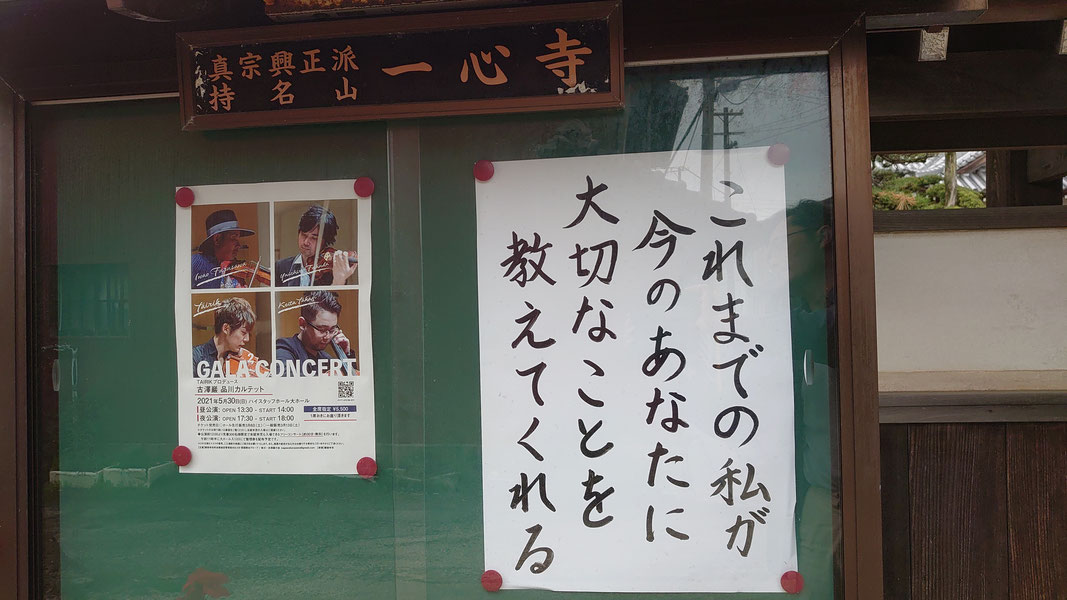 真宗興正派
持名山
一心寺
これまでの私が
今のあなたに
大切なことを
教えてくれる
Iwao Furusawa
Yuichiro Fukuda
TAIRIK
Keita Takagi
GALA CONCERT
TAIRIKプロデュース
古澤巖 品川カルテット
2021年5月30日(日) ハイスタッフホール大ホール
昼公演: OPEN 13:30 - START 14:00
夜公演: OPEN 17:30 - START 18:00
全席指定 ¥5,500